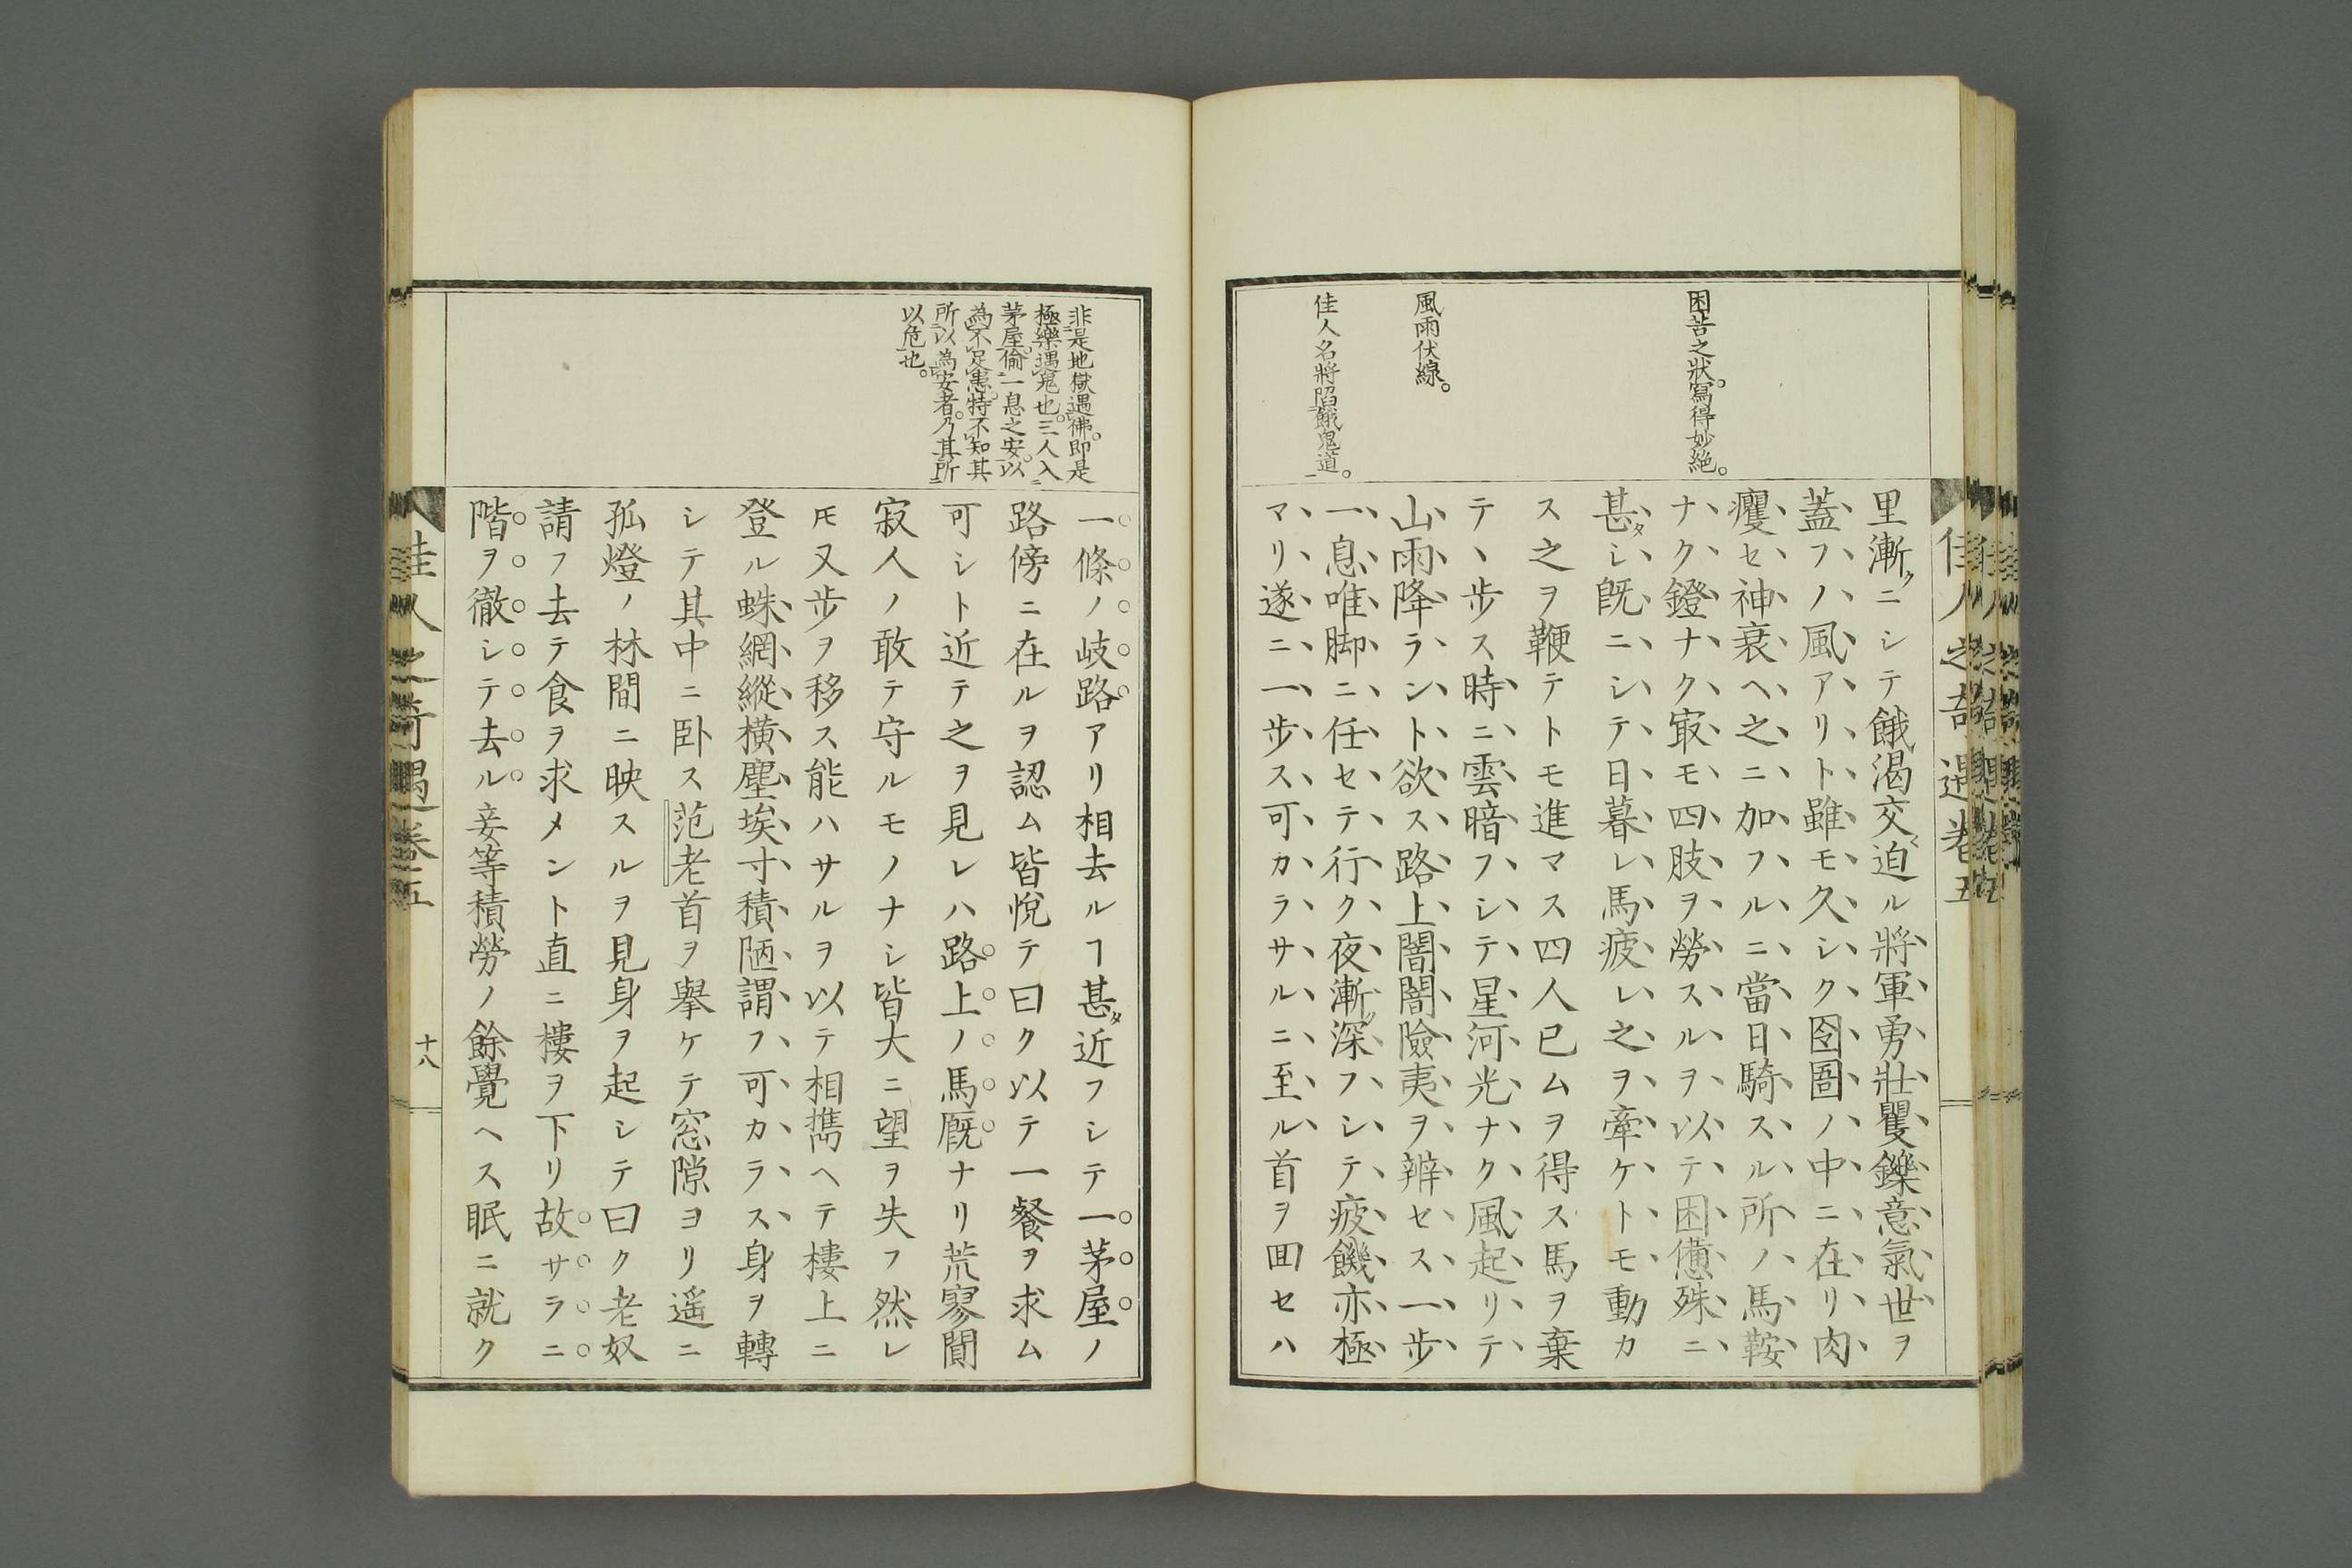 困苦之狀。寫得妙絕。
風雨伏線。
佳人名將陷餓鬼道。
里漸クニシテ餓渴交〻迫ル將軍勇壯矍鑠意氣世ヲ
蓋フノ風アリト雖モ久シク囹圄ノ中ニ在リ肉
癯セ神衰ヘ之ニ加フルニ當日騎スル所ノ馬鞍
ナク鐙ナク㝡モ四肢ヲ勞スルヲ以テ困憊殊ニ
甚タシ既ニシテ日暮レ馬疲レ之ヲ牽ケトモ動カ
ス之ヲ鞭テトモ進マス四人已ムヲ得ス馬ヲ棄
テヽ步ス時ニ雲暗フシテ星河光ナク風起リテ
山雨降ラント欲ス路上闇闇險夷ヲ辨セス一步
一息唯脚ニ任セテ行ク夜漸ク深フシテ疲饑亦極
マリ遂ニ一步ス可カラサルニ至ル首ヲ囬セハ
佳人之奇遇卷五
非是地獄遇佛。即是
極樂遇鬼也。三人入
茅屋。偷一息之安。以
為不足患。特不知其
所以為安者。乃其所
以危也。
一條ノ岐路アリ相去ルヿ甚タ近フシテ一茅屋ノ
路傍ニ在ルヲ認ム皆悅テ曰ク以テ一餐ヲ求ム
可シト近テ之ヲ見レハ路上ノ馬厩ナリ荒寥閴
寂人ノ敢テ守ルモノナシ皆大ニ望ヲ失フ然レ
𪜈又步ヲ移ス能ハサルヲ以テ相携ヘテ樓上ニ
登ル蛛網縱橫塵埃寸積陋謂フ可カラス身ヲ轉
シテ其中ニ卧ス范老首ヲ擧ケテ窓隙ヨリ遥ニ
孤燈ノ林間ニ映スルヲ見身ヲ起シテ曰ク老奴
請フ去テ食ヲ求メント直ニ樓ヲ下リ故サラニ
階ヲ徹シテ去ル妾等積勞ノ餘覺ヘス眠ニ就ク
佳人之奇遇卷五
十八